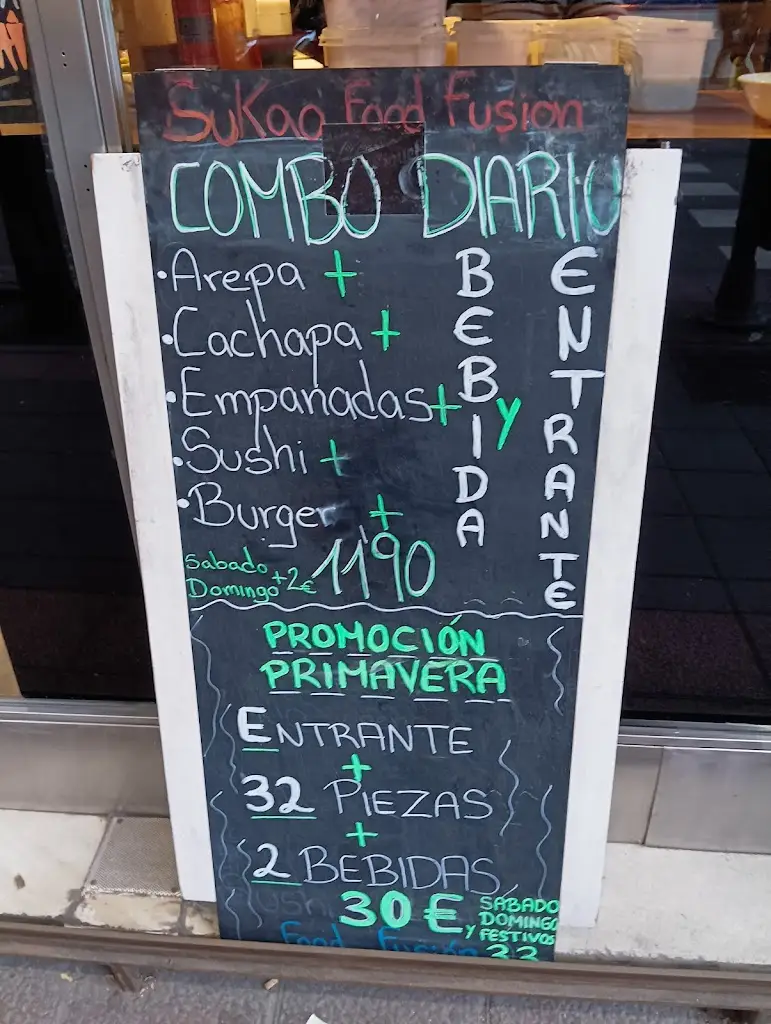 SuKao Food Fusion
COMBO DIARIO
• Arepa +
• Cachapa +
• Empanadas +
• Sushi +
• Burger +
BEBIDA
y
ENTRANTE
Sabado
Domingo +2€
11'90
PROMOCIÓN
PRIMAVERA
ENTRANTE
+
32 PIEZAS
+
2 BEBIDAS
30 €
SABADO
DOMINGO
y FESTIVOS
33
Food Fusión